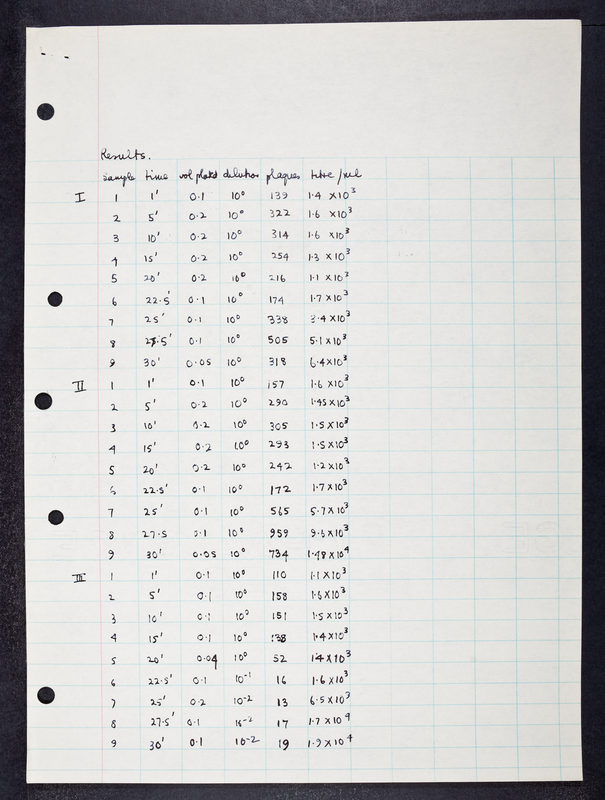 Results.
sample time vol plated dilution plaques titre/ml
I 1 1' 0.1 10⁰ 139 1.4 x10³
2 5' 0.2 10⁰ 322 1.6 x10³
3 10' 0.2 10⁰ 314 1.6 x10³
4 15' 0.2 10⁰ 254 1.3 x10³
5 20' 0.2 10⁰ 216 1.1 x10³
6 22.5' 0.1 10⁰ 174 1.7 x10³
7 25' 0.1 10⁰ 338 3.4 x10³
8 27.5' 0.1 10⁰ 505 5.1 x10³
9 30' 0.05 10⁰ 318 6.4 x10³
II 1 1' 0.1 10⁰ 157 1.6 x10³
2 5' 0.2 10⁰ 290 1.45 x10³
3 10' 0.2 10⁰ 305 1.5 x10³
4 15' 0.2 10⁰ 293 1.5 x10³
5 20' 0.2 10⁰ 242 1.2 x10³
6 22.5' 0.1 10⁰ 172 1.7 x10³
7 25' 0.1 10⁰ 565 5.7 x10³
8 27.5 0.1 10⁰ 959 9.6 x10³
9 30' 0.05 10⁰ 734 1.48 x10⁴
III 1 1' 0.1 10⁰ 110 1.1 x10³
2 5' 0.1 10⁰ 158 1.6 x10³
3 10' 0.1 10⁰ 151 1.5 x10³
4 15' 0.1 10⁰ 138 1.4 x10³
5 20' 0.04 10⁰ 52 1.4 x10³
6 22.5' 0.1 10⁻¹ 16 1.6 x10³
7 25' 0.2 10⁻² 13 6.5 x10³
8 27.5' 0.1 10⁻² 17 1.7 x10⁴
9 30' 0.1 10⁻² 19 1.9 x10⁴